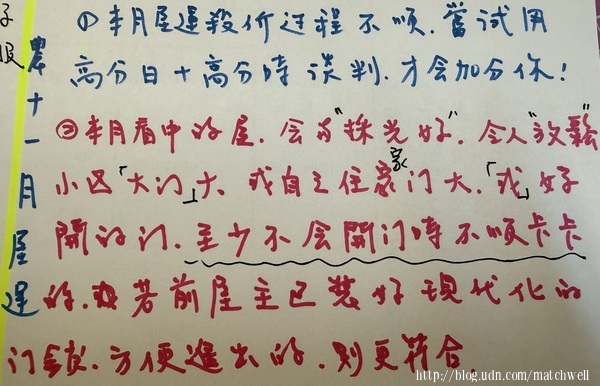 子
服
農十一月屋運
①本月屋運殺价过程不順.嘗試用
高分日+高分時談判.才会加分你!
②本月看中的屋.会為"採光好".令人"放鬆"
小区「大门」大.或自己住家门大.「或」好
家
開的门.至少不会開门時不順卡卡
的.或若前屋主已装好現代化的
门.方便進出的.则更符合.
http://blog.udn.com/matchwell